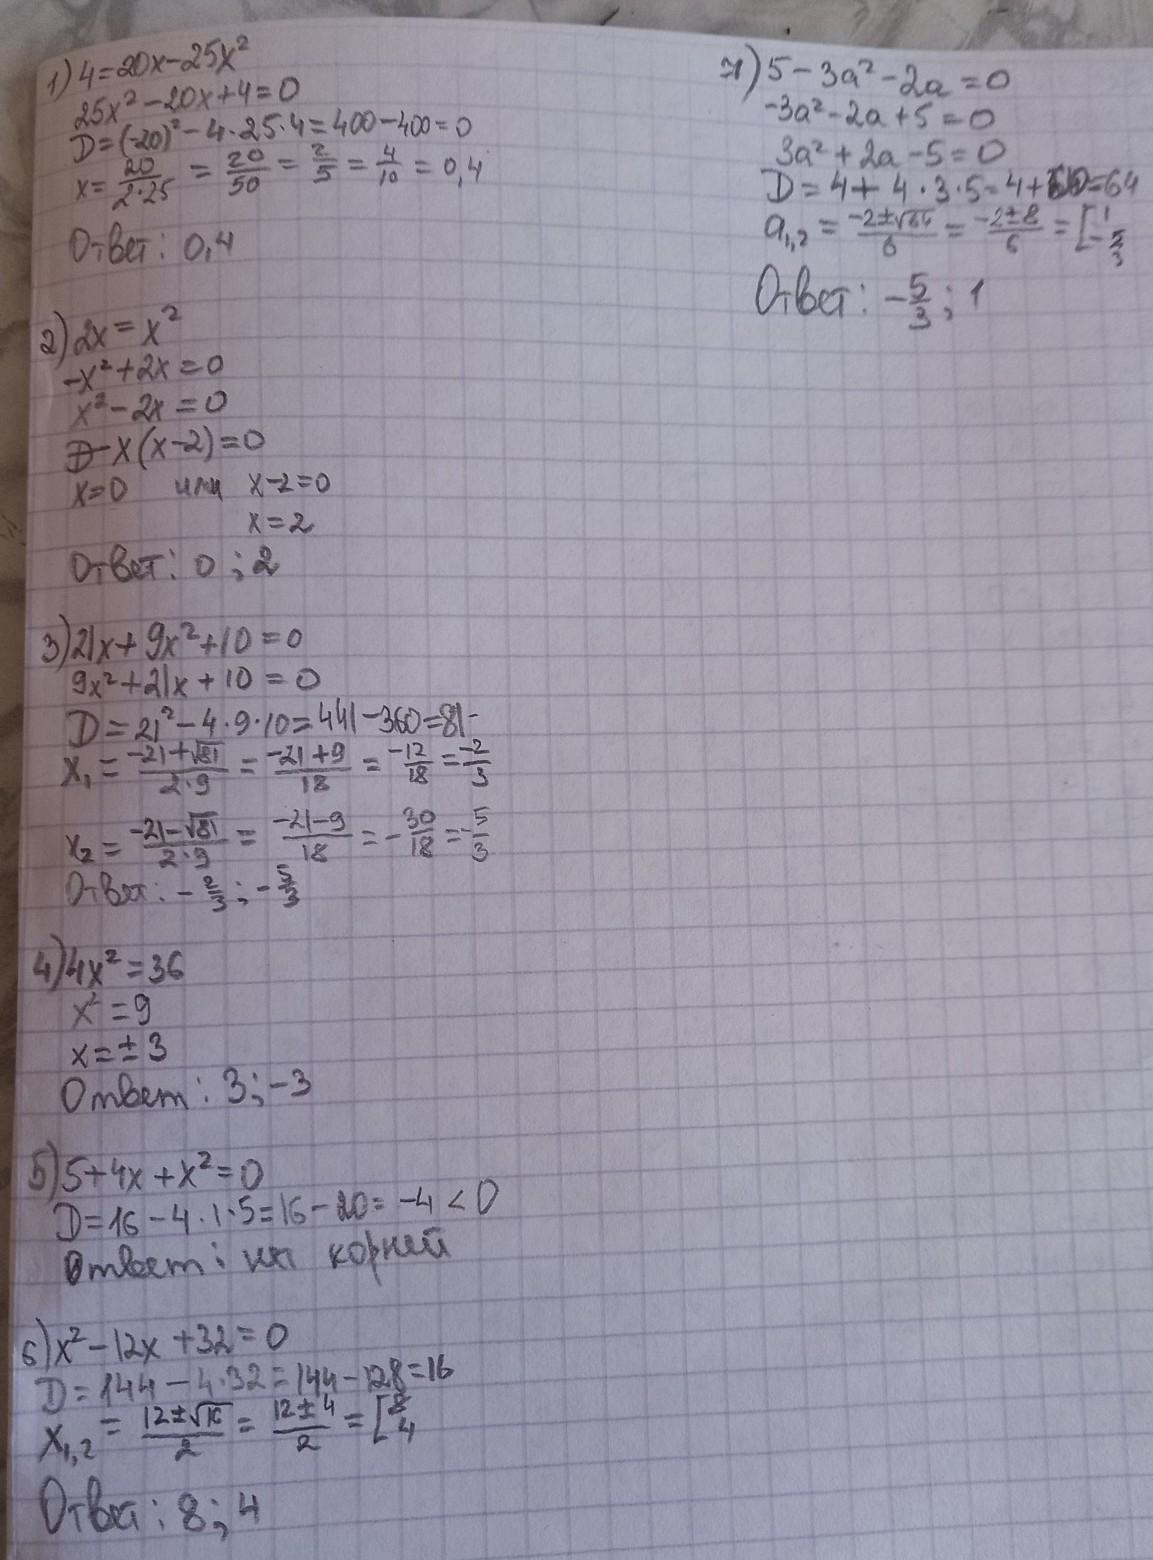 1) 4=20x-25x²
25x²-20x+4=0
D=(-20)²-4·25·4=400-400=0
x=20/2·25 = 20/50 = 2/5 = 4/10 = 0,4
Ответ: 0,4
2) 2x=x²
-x²+2x=0
x²-2x=0
x(x-2)=0
x=0 или x-2=0
x=2
Ответ: 0; 2
3) 21x+9x²+10=0
9x²+21x+10=0
D=21²-4·9·10=441-360=81
x₁ = -21+√81/2·9 = -21+9/18 = -12/18 = -2/3
x₂ = -21-√81/2·9 = -21-9/18 = -30/18 = -5/3
Ответ: -2/3; -5/3
4) 4x²=36
x²=9
x=±3
Ответ: 3; -3
5) 5+4x+x²=0
D=16-4·1·5=16-20=-4<0
Ответ: нет корней
6) x²-12x+32=0
D=144-4·32=144-128=16
x₁,₂ = 12±√16/2 = 12±4/2 = [8 4
Ответ: 8; 4
7) 5-3a²-2a=0
-3a²-2a+5=0
3a²+2a-5=0
D=4+4·3·5=4+60=64
a₁,₂ = -2±√64/6 = -2±8/6 = [1 -5/3
Ответ: -5/3; 1